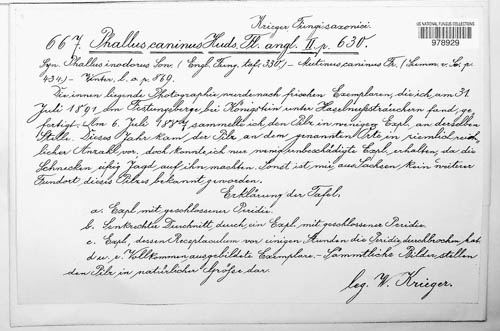 Krieger Fungi saxonici.
US NATIONAL FUNGUS COLLECTIONS
978929
667. Phallus caninus Huds. Fl. angl. II. p. 630.
Syn. Phallus inodorus Sow. (Engl. Fung. taf. 330) – Mutinus caninus Fr. (Summ. v. Sc. p.
434.) – Winter, l. c. p. 869.
Die innen liegende Photographie wurde nach frischen Exemplaren, die ich am 31.
Juli 1891 am Fürstenberge bei Königstein unter Haselnußsträuchern fand, ge-
fertigt. Am 6. Juli sammelte ich den Pilz in wenigen Expl. an derselben
Stelle. Dieses Jahr kam der Pilz an dem genannten Orte in ziemlich reich-
licher Anzahl vor, doch konnte ich nur wenig unbeschädigte Expl. erhalten, da die
Schnecken eifrig Jagd auf ihn machten. Sonst ist mir aus Sachsen kein weiterer
Fundort dieses Pilzes bekannt geworden.
Erklärung der Tafel.
a. Expl. mit geschlossener Peridie.
b. Senkrechter Durchnitt durch ein Expl. mit geschlossener Peridie.
c. Expl., dessen Receptaculum vor einigen Stunden die Peridie durchbrochen hat.
d u. e. Vollkommen ausgebildete Exemplare. – Sämmtliche Bilder stellen
den Pilz in natürlicher Größe dar.
leg. W. Krieger.